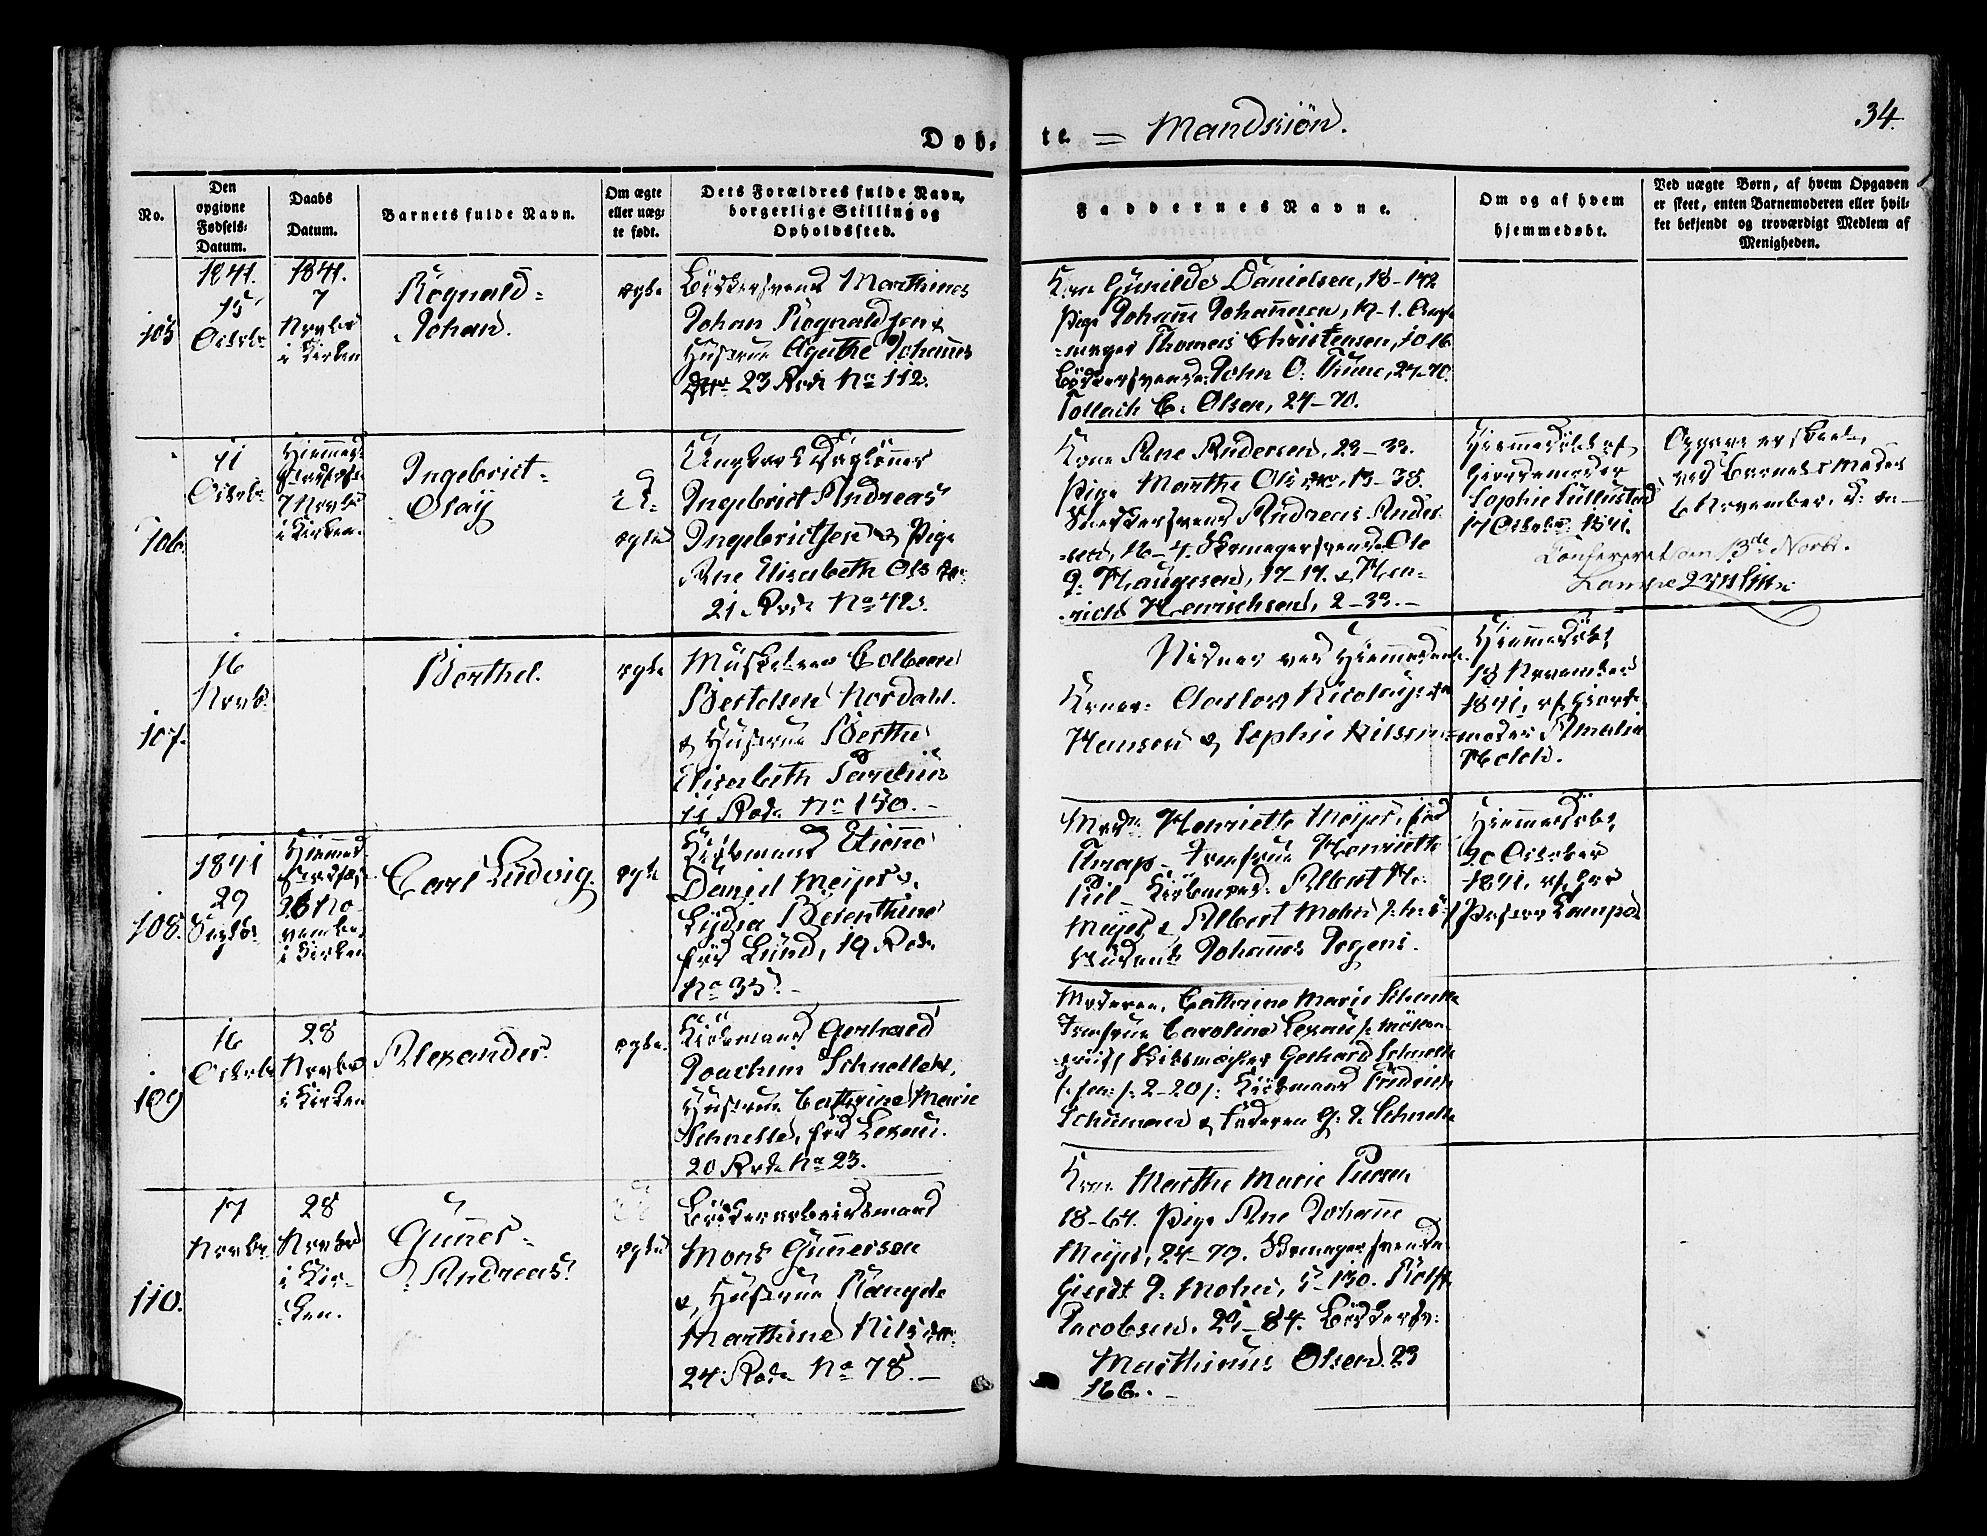 Døb-te = Mandkiön.
34.
No.
Den opgivne Fødsels-Datum.
Daabs Datum.
Barnets fulde Navn.
Om ægte eller uægte født.
Dets Forældres fulde Navn, borgerlige Stilling og Opholdssted.
Faddernes Navne.
Om og af hvem hjemmedøbt.
Ved uægte Børn, af hvem Opgaven er skeet, enten Barnemoderen eller hvilket bekjendt og troværdigt Medlem af Menigheden.
105
1841.
15
Octobr
1841.
7
Novbr
i Kirken
Rognald
Johan.
ægte
Bödkersvend Marthinus
Johan Rognaldsen &
Hustrue Agathe Johannes
Dtr 23 Rode No 112.
Kone Gunilde Danielsen, 18-142
Pige Johanne Johannesen, 19-1.
Thomas Christensen, 10-16
Bödkersvende John O. Thune, 24-70.
Tollach C. Olsen, 24-70.
106.
11
Octobr
Hiemmed.
7 Novbr
i Kirken.
Ingebrict
Olay
U-
ægte
Ungkarl
Ingebrict Andreas
Ingebrictsen & Pige
Ane Elisabeth Ols Dtr
21 Rode No 42.
Kone Ane Andersen, 23-33.
Pige Marthe Olsen, 13-38.
Andreas Ander
sen, 16-4. Skomagersvend Ole
J. Haugesen, 17-17. & Hen-
rich Henrichsen, 2-33.
Hiemmedöbt af
Giordemoder
Sophie Tullustad
17 October 1841.
Opgave er skeet
ved Barnets Moder
6 November.
Confereret den 13de Novbr.
107.
16
Novb.
Berthel.
ægte
Musketeer Colbeen
Bertelsen Nordahl
& Hustrue Berthe
Elisabeth
11 Rode No 150.
Vidner ved Hiemmedaab
Koner: Aaslov Nicolaysen
Hansen & Sophie Nilsen
Hiemmedöbt
18 November
1841, af Giorde
moder Amalia
Holck.
108.
1841
29
Hiemmed.
26 No-
vember
i Kirken
Carl Ludvig.
ægte
Kiöbmand Etienne
Daniel Meyer &
Lydia Berenthine
föd Lund, 19 Rode
No 35.
Madm Henriette Meyer, föd
Knap. Jomfrue Henriette
Piil. Kiöbmænd: Albert H.
Meyer & Albert Mohr
Student Johannes Jrgens.
Hiemmedöbt
20 October
1841, af Her
Pastor Lampe
109
16
Octobr
28
Novbr
i Kirken
Alexander.
ægte.
Kiöbmand Gerhard
Joachim Schnelle &
Hustrue Cathrine Marie
Schnelle, föd Lexau.
20 Rode No 23.
Moderen, Cathrine Marie Schnelle
Jomfrue Caroline Lexau
Gerhard Schnelle
sen: 2-20 Kiöbmand Fridrich
Schumann & Faderen G. J. Schnelle
110.
17
Novbr
28
Novbr
i Kir-
ken.
Gunner
Andreas.
ægte
Bödkerarbeidsmand
Mons Gunnersen
& Hustrue Rangde
Marthine Nils Dtr
24 Rode No 78.
Kone Marthe Marie
18-64. Pige Ane Johanne
Meyer, 24-79. Skomagersvende
Gierdt J. Mohn, 5-130. Rolff
Jacobsen, 21-84. Bödkersv:
Marthinus Olsen. 23
166.